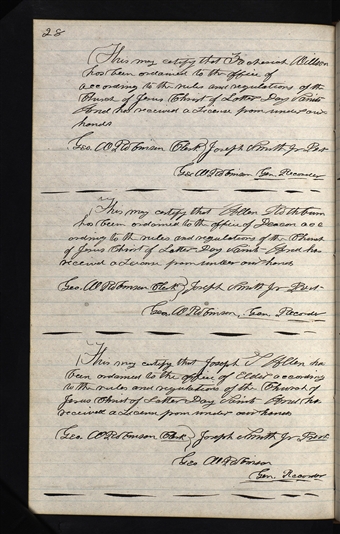 28
This may certify that Zachariah Wilson
has been ordained to the office of
according to the rules and regulations of the
Church of Jesus Christ of Latter Day Saints
And has received a License from under our
hands
Geo. W Robinson Clerk } Joseph Smith Jr Prest
Geo W Robinson Gen. Recorder
This may certify that Allen Rathbun
has been ordained to the office of Deacon acc
ording to the rules and regulations of the Church
of Jesus Christ of Latter Day Saints And has
received a License from under our hands
Geo. W Robinson Clerk } Joseph Smith Jr Prest-
Geo. W Robinson, Gen. Recorder
This may certify that Joseph S Allen has
been ordained to the office of Elder according
to the rules and regulations of the Church of
Jesus Christ of Latter Day Saints And has
received a License from under our hands
Geo. W Robinson Clerk } Joseph Smith Jr Prest
Geo W Robinson
Gen. Recorder